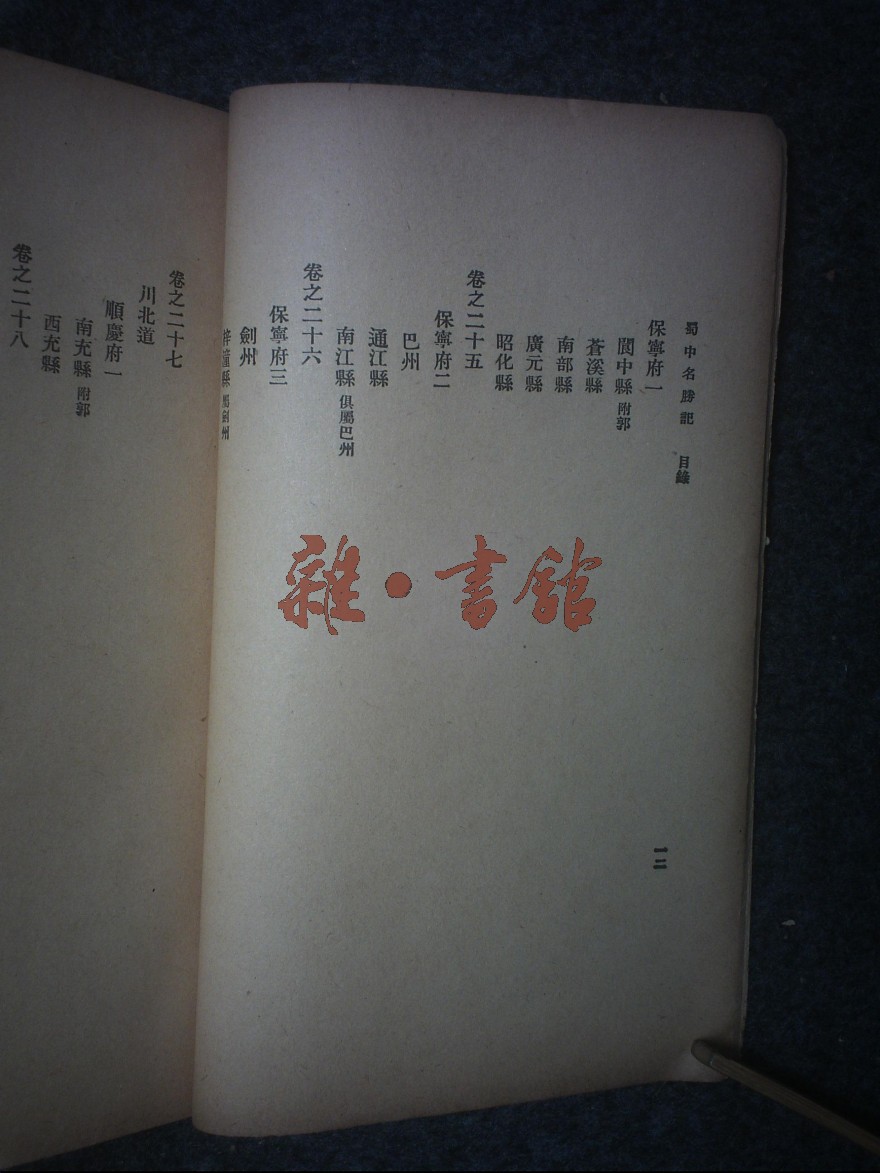 蜀中名勝記 目錄
保寧府一
閬中縣 附郭
蒼溪縣
南部縣
廣元縣
昭化縣
卷之二十五
保寧府二
巴州
通江縣
南江縣 俱屬巴州
卷之二十六
保寧府三
劍州
梓潼縣 屬劍州
一二
卷之二十七
川北道
順慶府一
南充縣 附郭
西充縣
卷之二十八
雜·書館